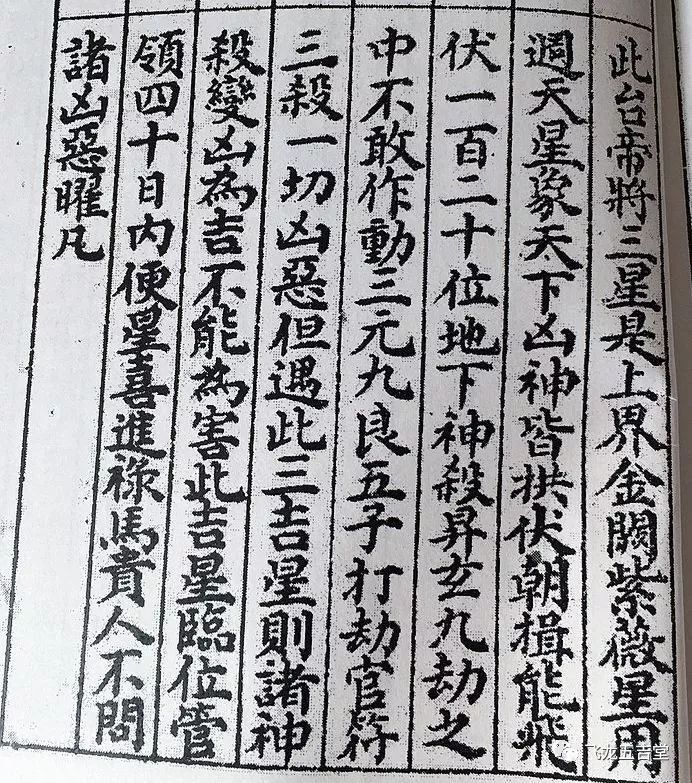 此台帝將三星是上界金闕紫薇星用
週天星象天下凶神皆拱伏朝揖能飛
伏一百二十位地下神殺昇玄九劫之
中不敢作動三元九良五子打劫官符
三殺一切凶惡但遇此三吉星則諸神
殺變凶為吉不能為害此吉星臨位管
領四十日內便星喜進祿馬貴人不問
諸凶惡曜凡
飞龙五吉堂